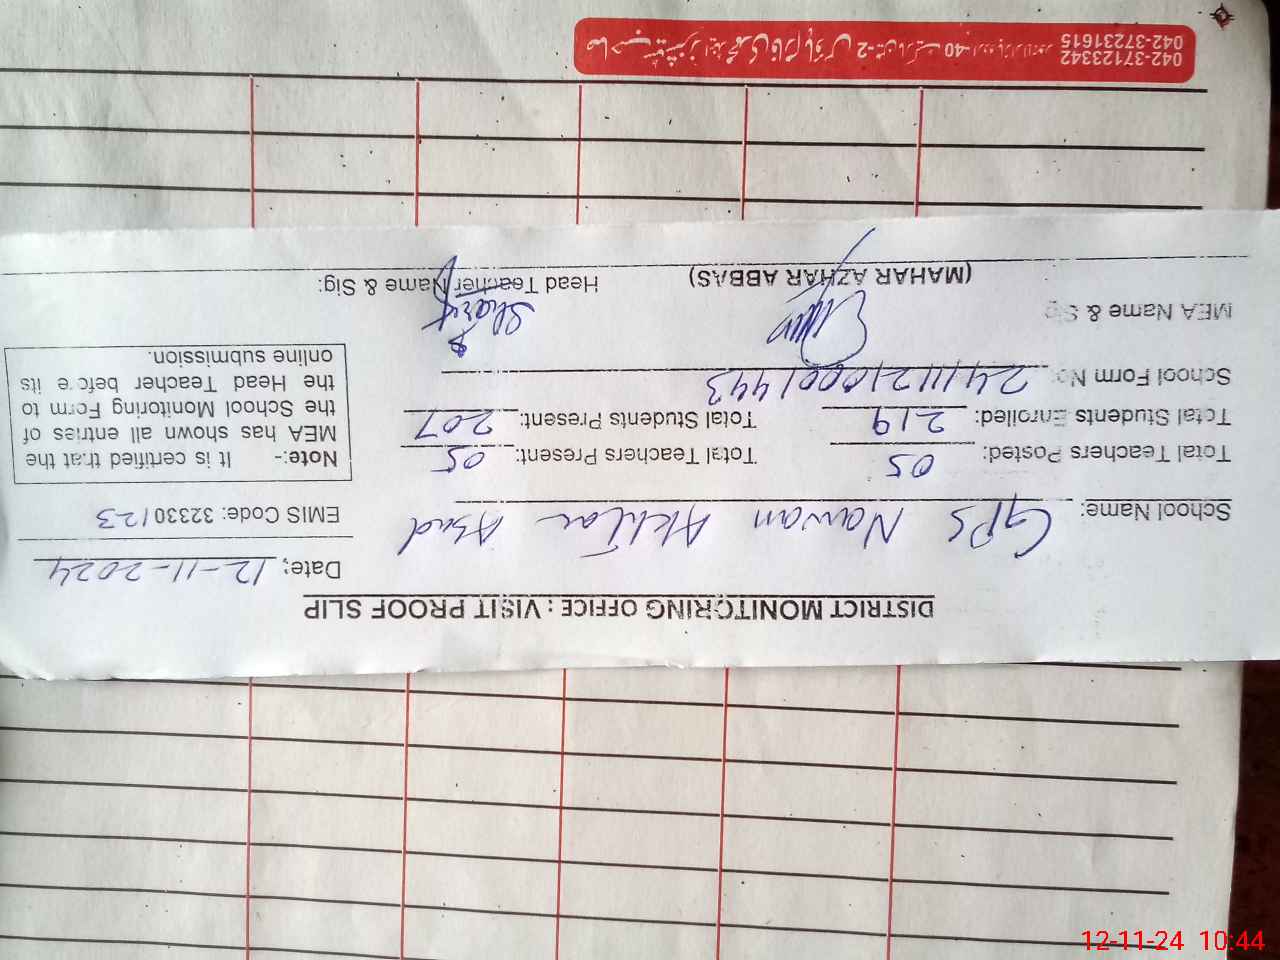 DISTRICT MONITORING OFFICE : VISIT PROOF SLIP
Date: 12-11-2024
School Name: GPS Nawan Akhtar Abad
EMIS Code: 32330123
Total Teachers Posted: 05 Total Teachers Present: 05
Total Students Enrolled: 219 Total Students Present: 207
School Form No: 24111210001443
Note:- It is certified that the
MEA has shown all entries of
the School Monitoring Form to
the Head Teacher before its
online submission.
MEA Name & Sig
(MAHAR AZHAR ABBAS)
Head Teacher Name & Sig:
Sharif
042-37123342
042-37231615
12-11-24 10:44